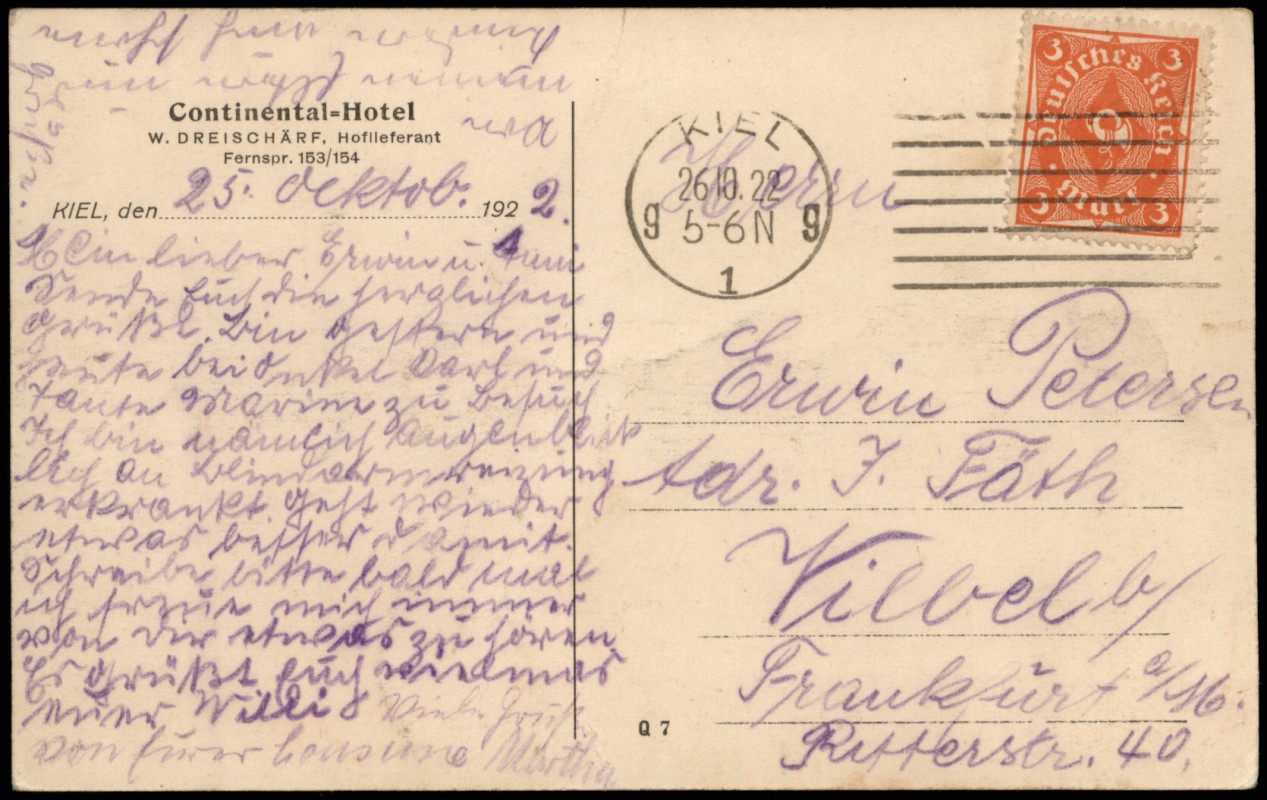 Continental=Hotel
W. DREISCHÄRF, Hoflieferant
Fernspr. 153/154
KIEL, den 25. Ocktob. 1922.
Mein lieber Erwin u.
Sende Euch die herzlichen
Grüße. Bin gestern und
heute bei Onkel Karl und
Tante Marine zu Besuch
Ich bin nämlich Augenblick
lich an Blindarmreizung
erkrankt. Geht wieder
etwas besser damit.
Schreibe bitte bald mal
ich freue mich immer
von dir etwas zu hören
Es grüßt Euch vielmas
euer Willi Viele Grüße
von Eurer Cousine Martha
KIEL
26.10.22
5-6 N
g g
1
3 3
Deutsches Reich
3
Mark
3 3
Herrn
Erwin Petersen
Adr. J. Fäth
Vilbel b/
Frankfurt a/M.
Ritterstr. 40.
Q 7